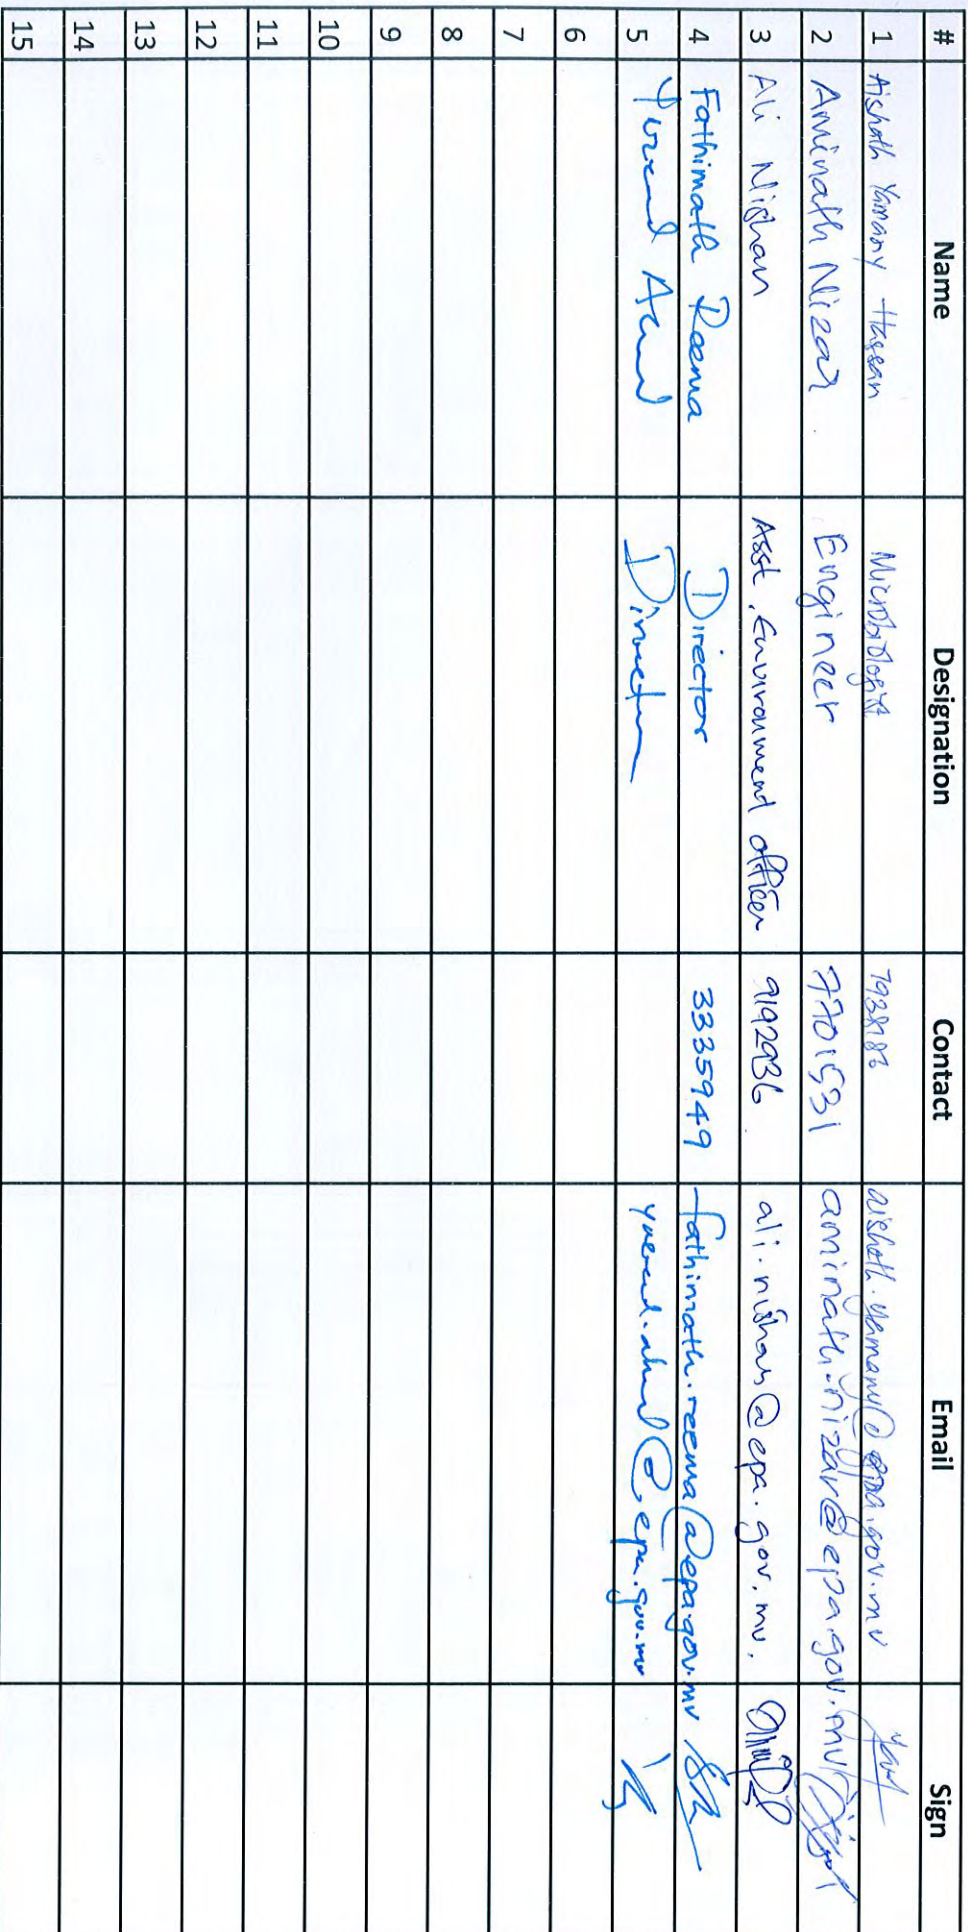 # Name Designation Contact Email Sign
1 Aishath Yamany Hassan Microbiologist aishath.yamany@epa.gov.mv
2 Aminath Nizar. Engineer 7701531 aminath.nizar@epa.gov.mv
3 Ali Nishan Asst. Environment officer 9192936 ali.nishan@epa.gov.mv.
4 Fathimath Reema Director 3335949 fathimath.reema@epa.gov.mv
5 Director @epa.gov.mv
6
7
8
9
10
11
12
13
14
15